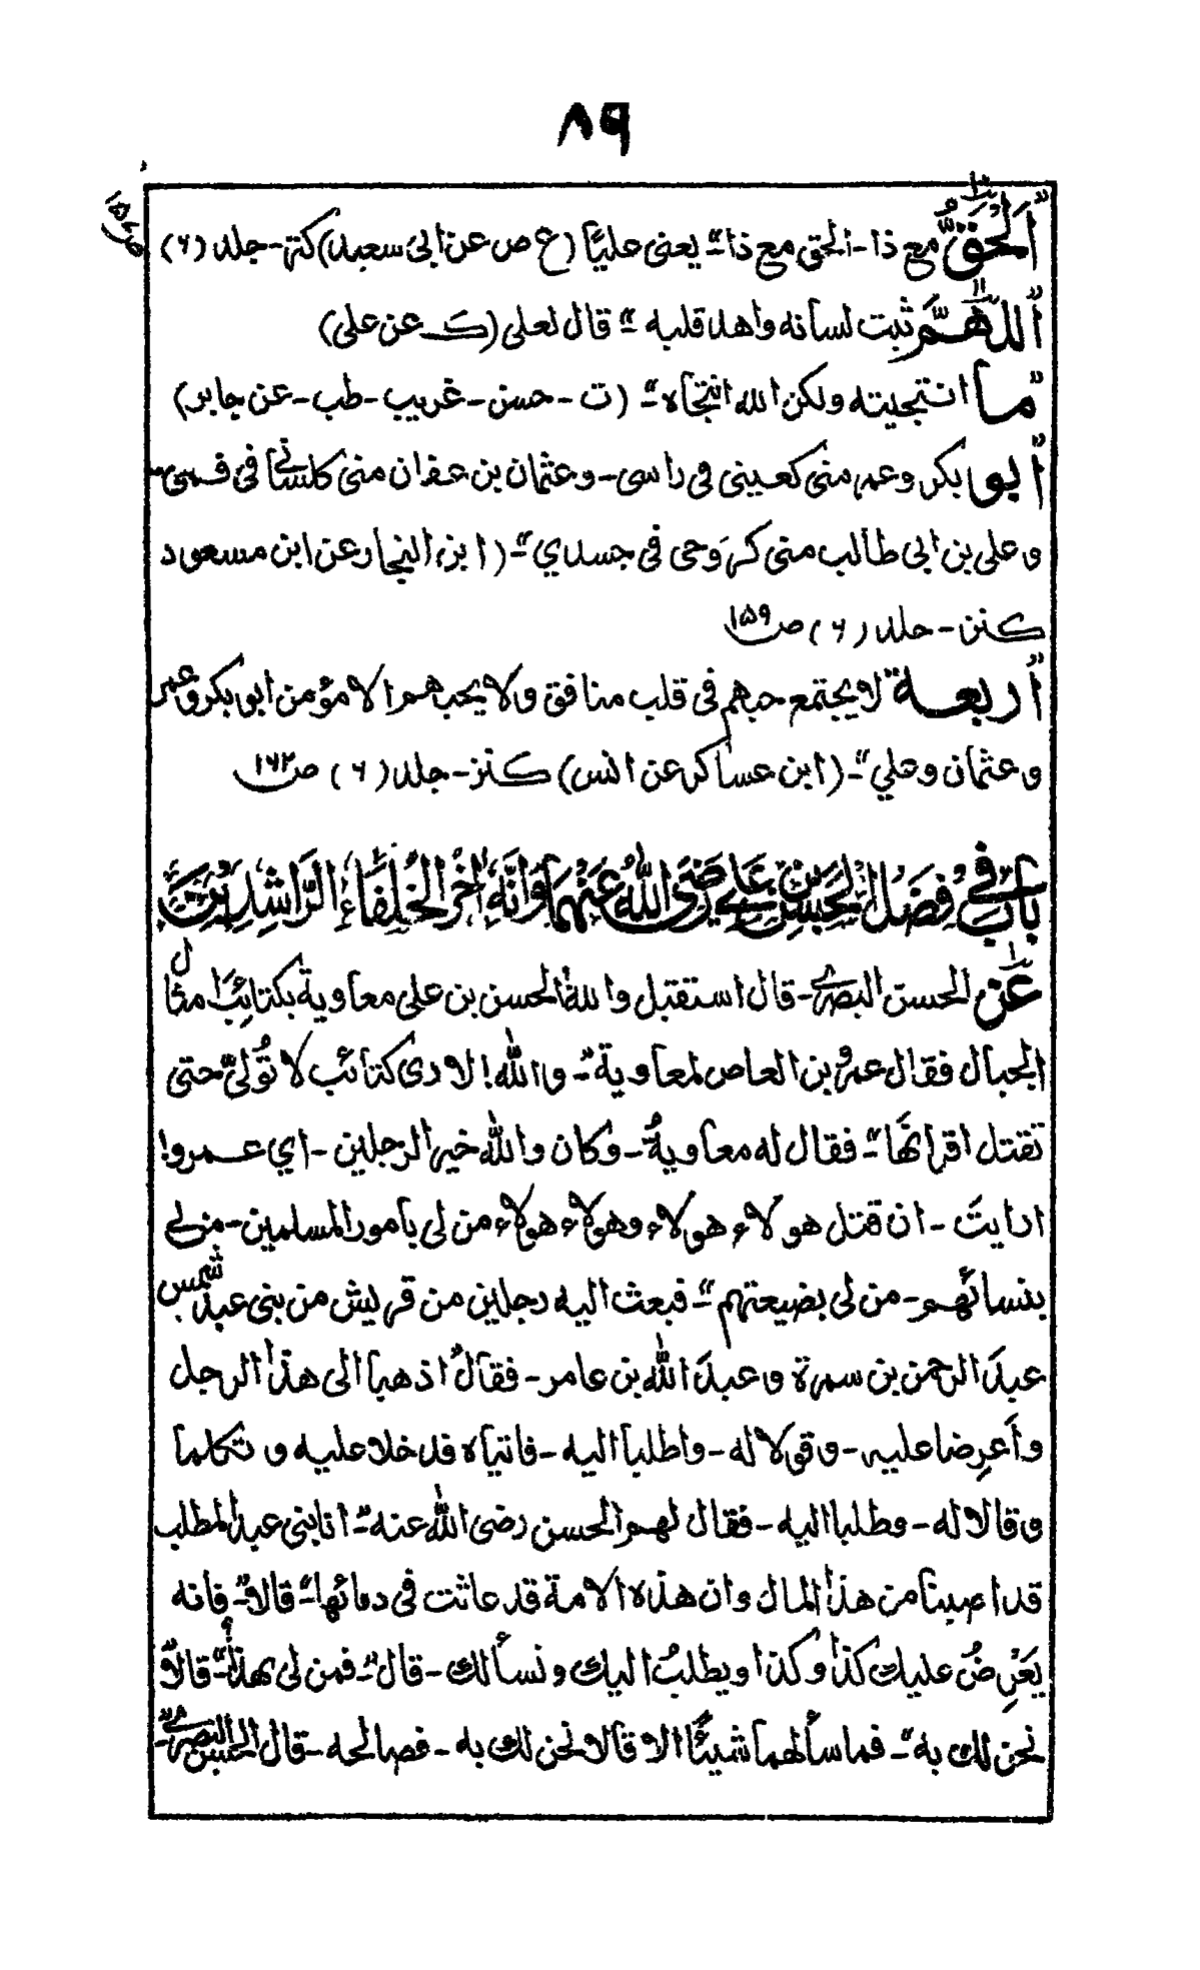 ٨٩
"اَلْحَقُّ مع ذا - الحق مع ذا"- يعنى عليًا (ع ص عن ابى سعيد) كنز - جلد (٦)
"اَللّٰهُمَّ ثبت لسانه واهد قلبه"- قال لعلى (ك عن على)
"ما انتجيته ولكن الله انتجاه"- (ت - حسن - غريب - طب - عن جابر)
"ابو بكر وعمر منى كعينى فى راسى - وعثمان بن عفان منى كلسانى فى فمى -
وعلى بن ابى طالب منى كرَوحى فى جسدي"- (ابن النجار عن ابن مسعود
كنز - جلد (٦) ص ١٥٩
"اربعة لا يجتمع حبهم فى قلب منافق ولا يحبهم الا مؤمن ابو بكر وعمر
وعثمان وعلي"- (ابن عساكر عن انس) كنز - جلد (٦) ص ١٦٢
بَابٌ فِيْ فَضْلِ الْحَسَنِ بْنِ عَلِيٍّ رَضِيَ اللهُ عَنْهُمَا وَاَنَّهٗ اٰخِرُ الْخُلَفَاءِ الرَّاشِدِيْنَ
عَنِ الحسن البصرى - قال استقبل واللهِ الحسن بن على معاوية بكتائبَ امثال
الجبال فقال عمرو بن العاص لمعاوية"- والله! لارى كتائب لا تُولّى حتى
تقتل اقرانَها"- فقال له معاويةُ - وكان والله خير الرجلين - اي عمرو!
ارايتَ - ان قتل هولاء هولاء وهولاء هولاء من لى بامور المسلمين - من لى
بنسائهم - من لى بضيعتهم"- فبعث اليه رجلين من قريش من بنى عبد شمس
عبدَ الرحمن بن سمرة وعبدَ الله بن عامر - فقال اذهبا الى هذا الرجل
وأعرِضا عليه - وقولا له - واطلبا اليه - فاتياه فدخلا عليه وتكلما
وقالا له - وطلبا اليه - فقال لهم الحسن رضى الله عنه"- انا بنى عبد المطلب
قد اصبنا من هذا المال وان هذه الامة قد عاثت فى دمائها"- قالا"- فانه
يَعْرِضُ عليك كذا وكذا ويطلبُ اليك ونسألك - قال"- فمن لى بهذا؟"- قالا"
نحن لك به"- فما سألهما شيئًا الا قالا نحن لك به - فصالحه - قال الحسن البصرى"-